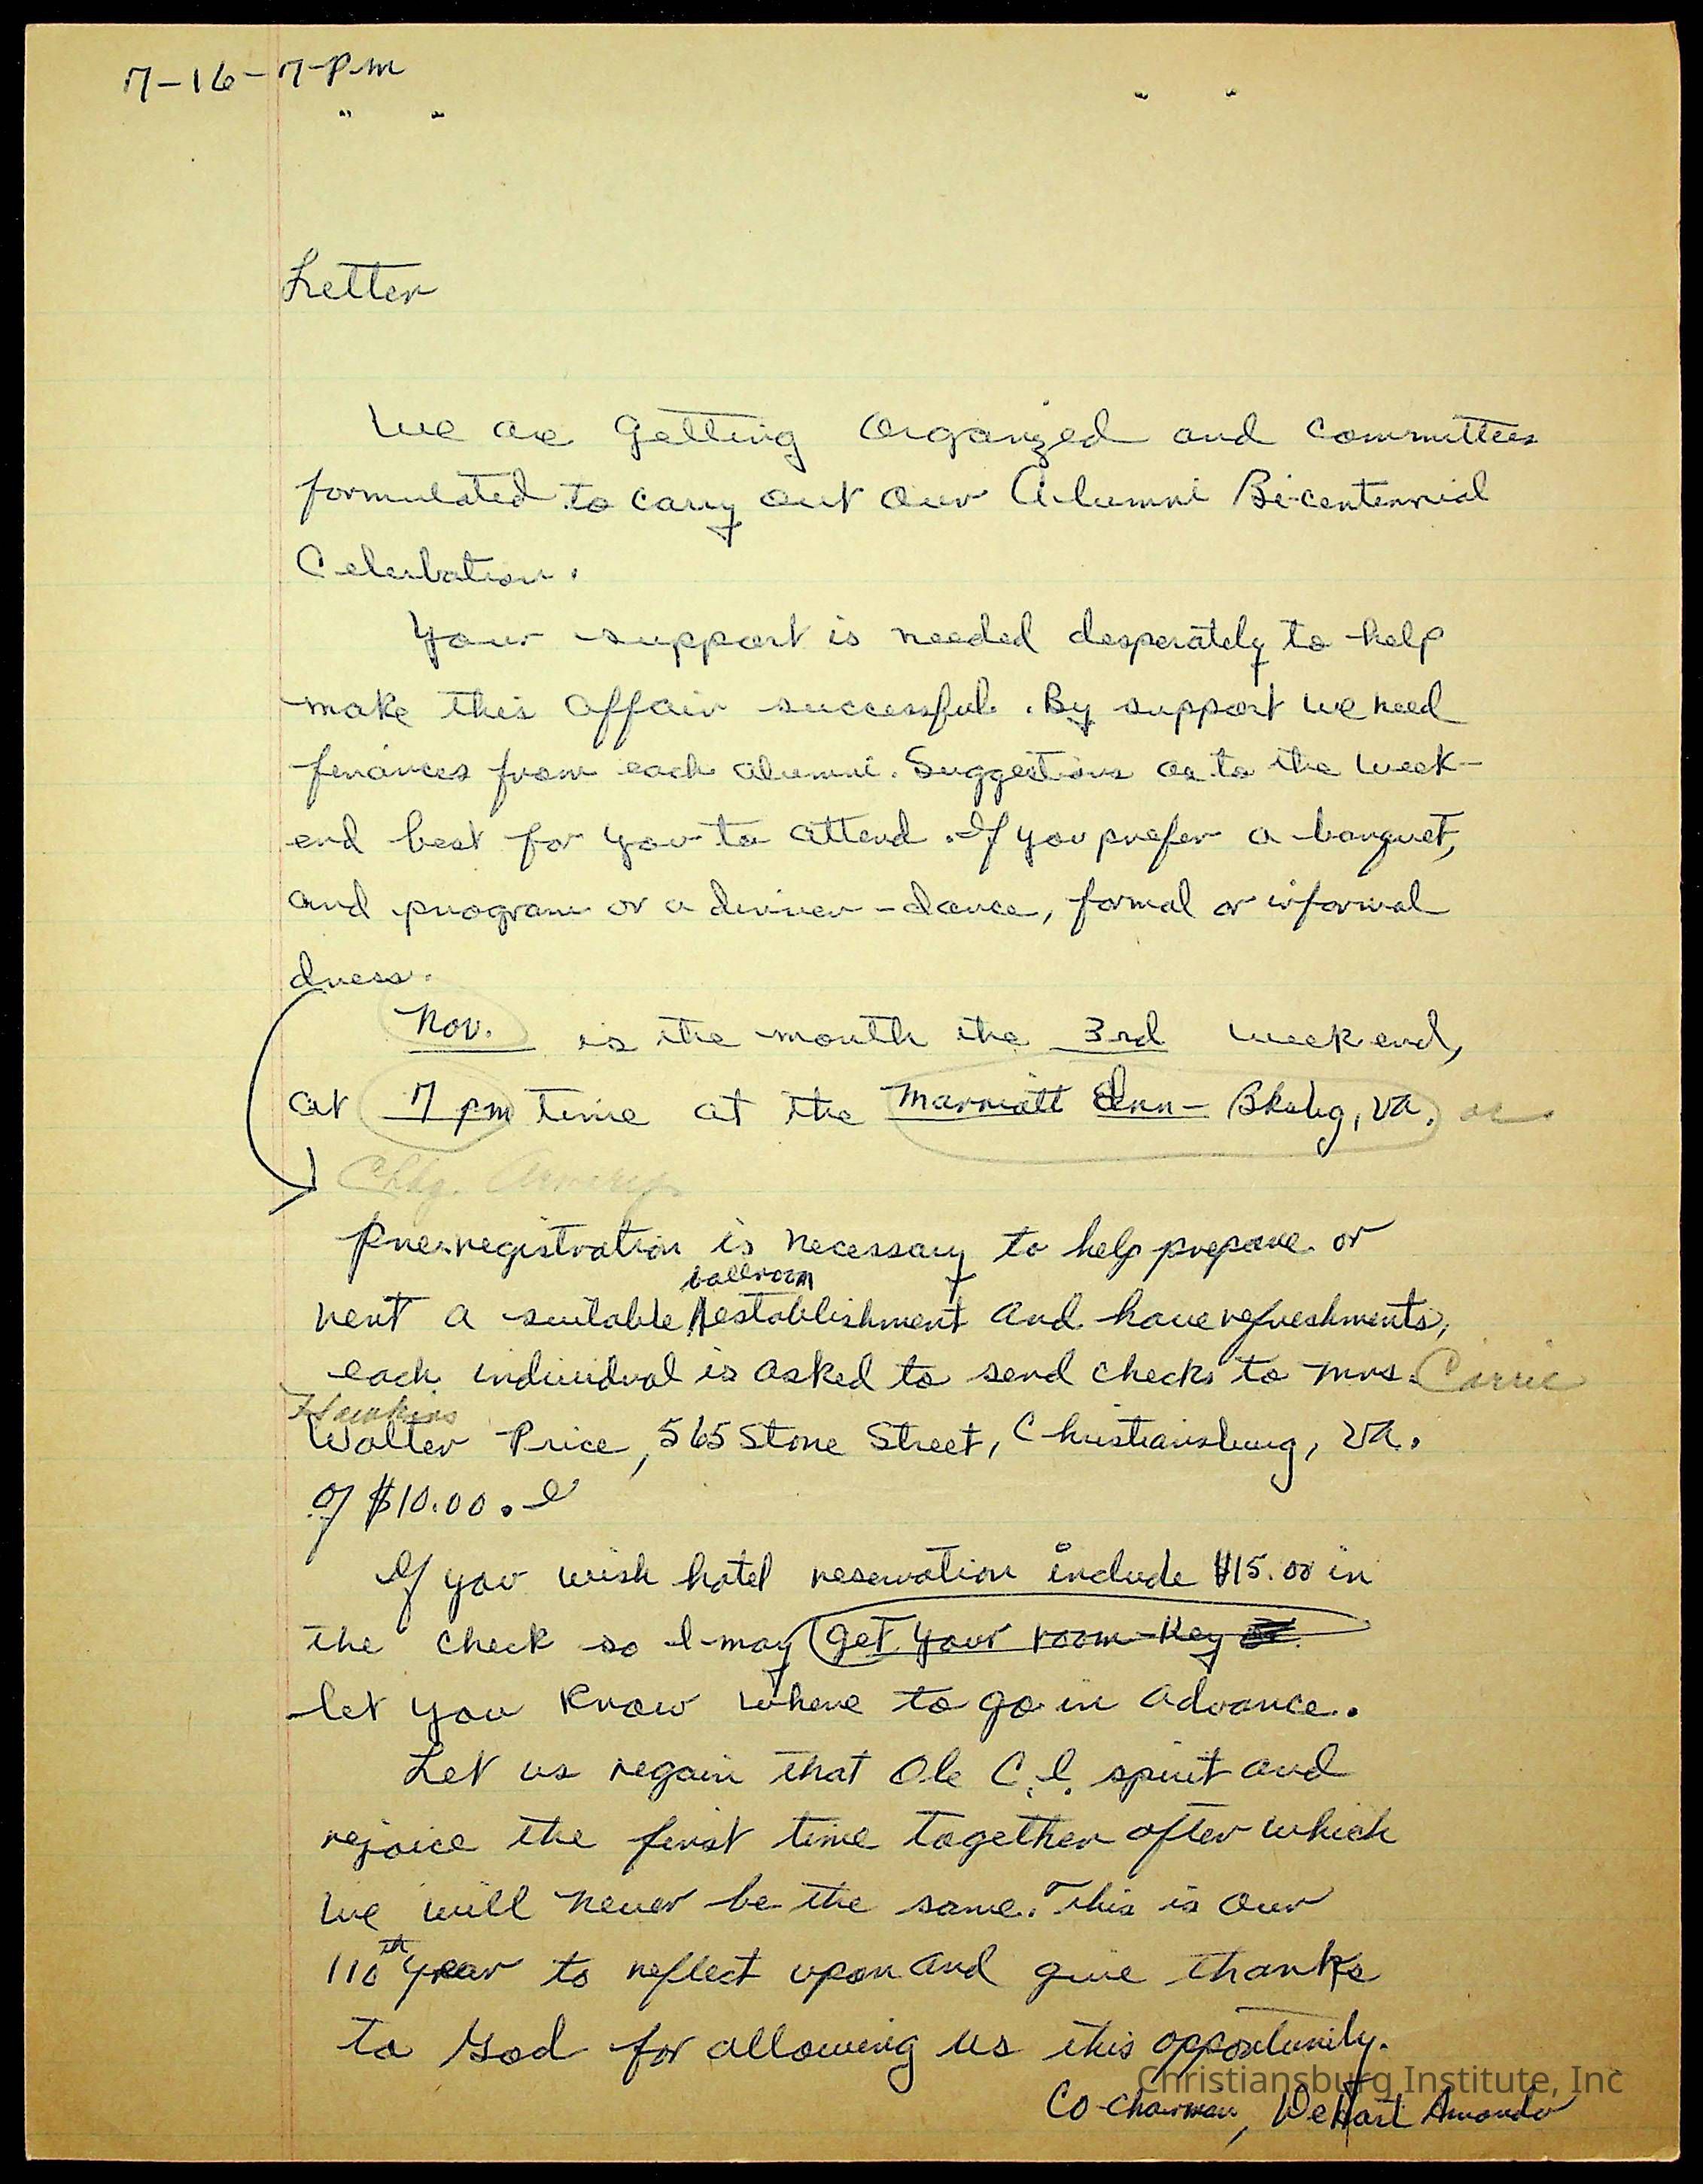 7-16-7-P.M
" "
" "
Letter
We are getting organized and committees
formulated to carry out our Alumni Bi-centennial
Celerbation.
Your support is needed desperately to help
make this affair successful. By support we need
finances from each alumni. Suggestions as to the week-
end best for you to attend. If you prefer a banquet,
and program or a dinner-dance, formal or informal
dress.
Nov. is the month the 3rd weekend,
at 7 pm time at the Marriott Inn- Bksbg, VA. or
Chbg. Armory
Pre-registration is necessary to help prepare or
ballroom
rent a suitable establishment and have refreshments,
each individual is asked to send checks to Mrs. Carrie
Hawkins
Walter Price, 565 Stone Street, Christiansburg, VA.
of $10.00.
If you wish hotel reservation include $15.00 in
the check so I may get your room-key or
let you know where to go in advance.
Let us regain that Ole C.I. spirit and
rejoice the first time together after which
we will never be the same. This is our
110th year to reflect upon and give thanks
to God for allowing us this opportunity.
Christiansburg Institute, Inc
Co-Chairman, DeHart Amanda